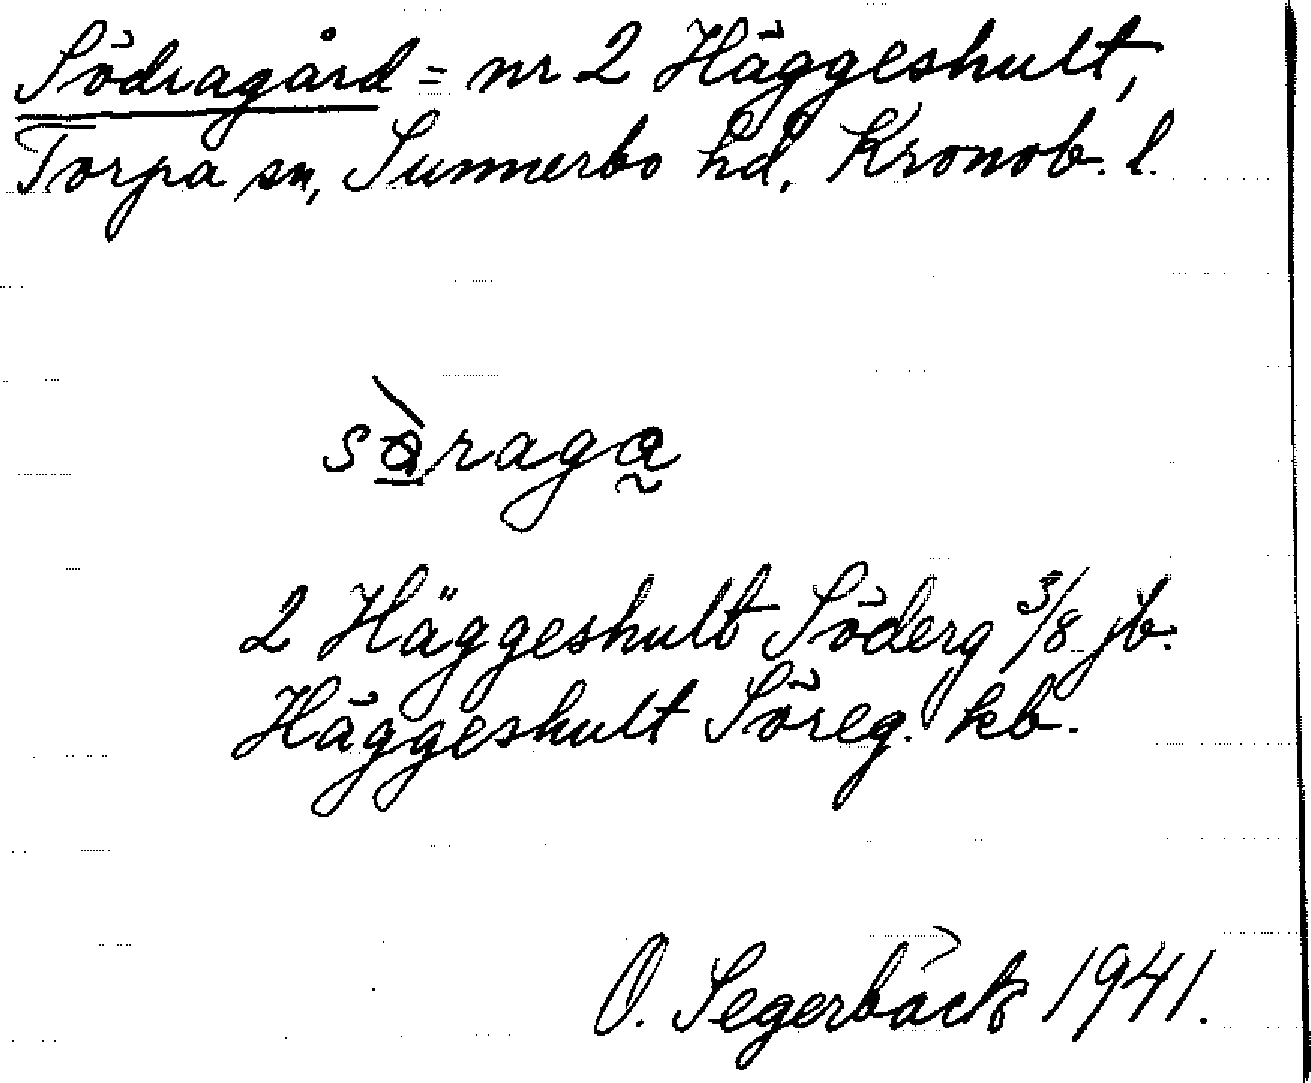 Södragård = nr 2 Häggeshult,
Torpa sn, Sunnerbo hd, Kronob. l.
sàraga
2 Häggeshult Söderg 3/8 jb.
Häggeshult Söreg. kb.
O. Segerbäck 1941.